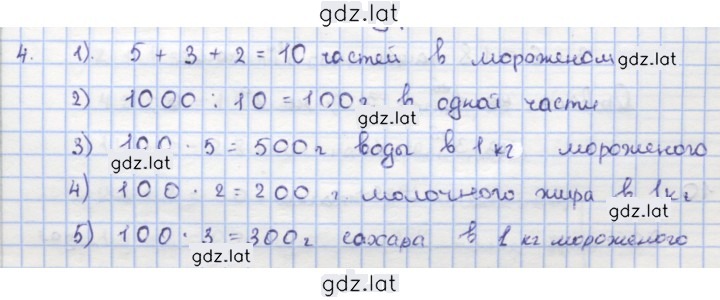 gdz.lat
4. 1). 5 + 3 + 2 = 10 частей в мороженом gdz.lat
2) 1000 : 10 = 100 г в одной части
gdz.lat
3) 100 · 5 = 500 г воды в 1 кг мороженого
gdz.lat
4) 100 · 2 = 200 г молочного жира в 1 кг
gdz.lat
5) 100 · 3 = 300 г сахара в 1 кг мороженого
gdz.lat
gdz.lat